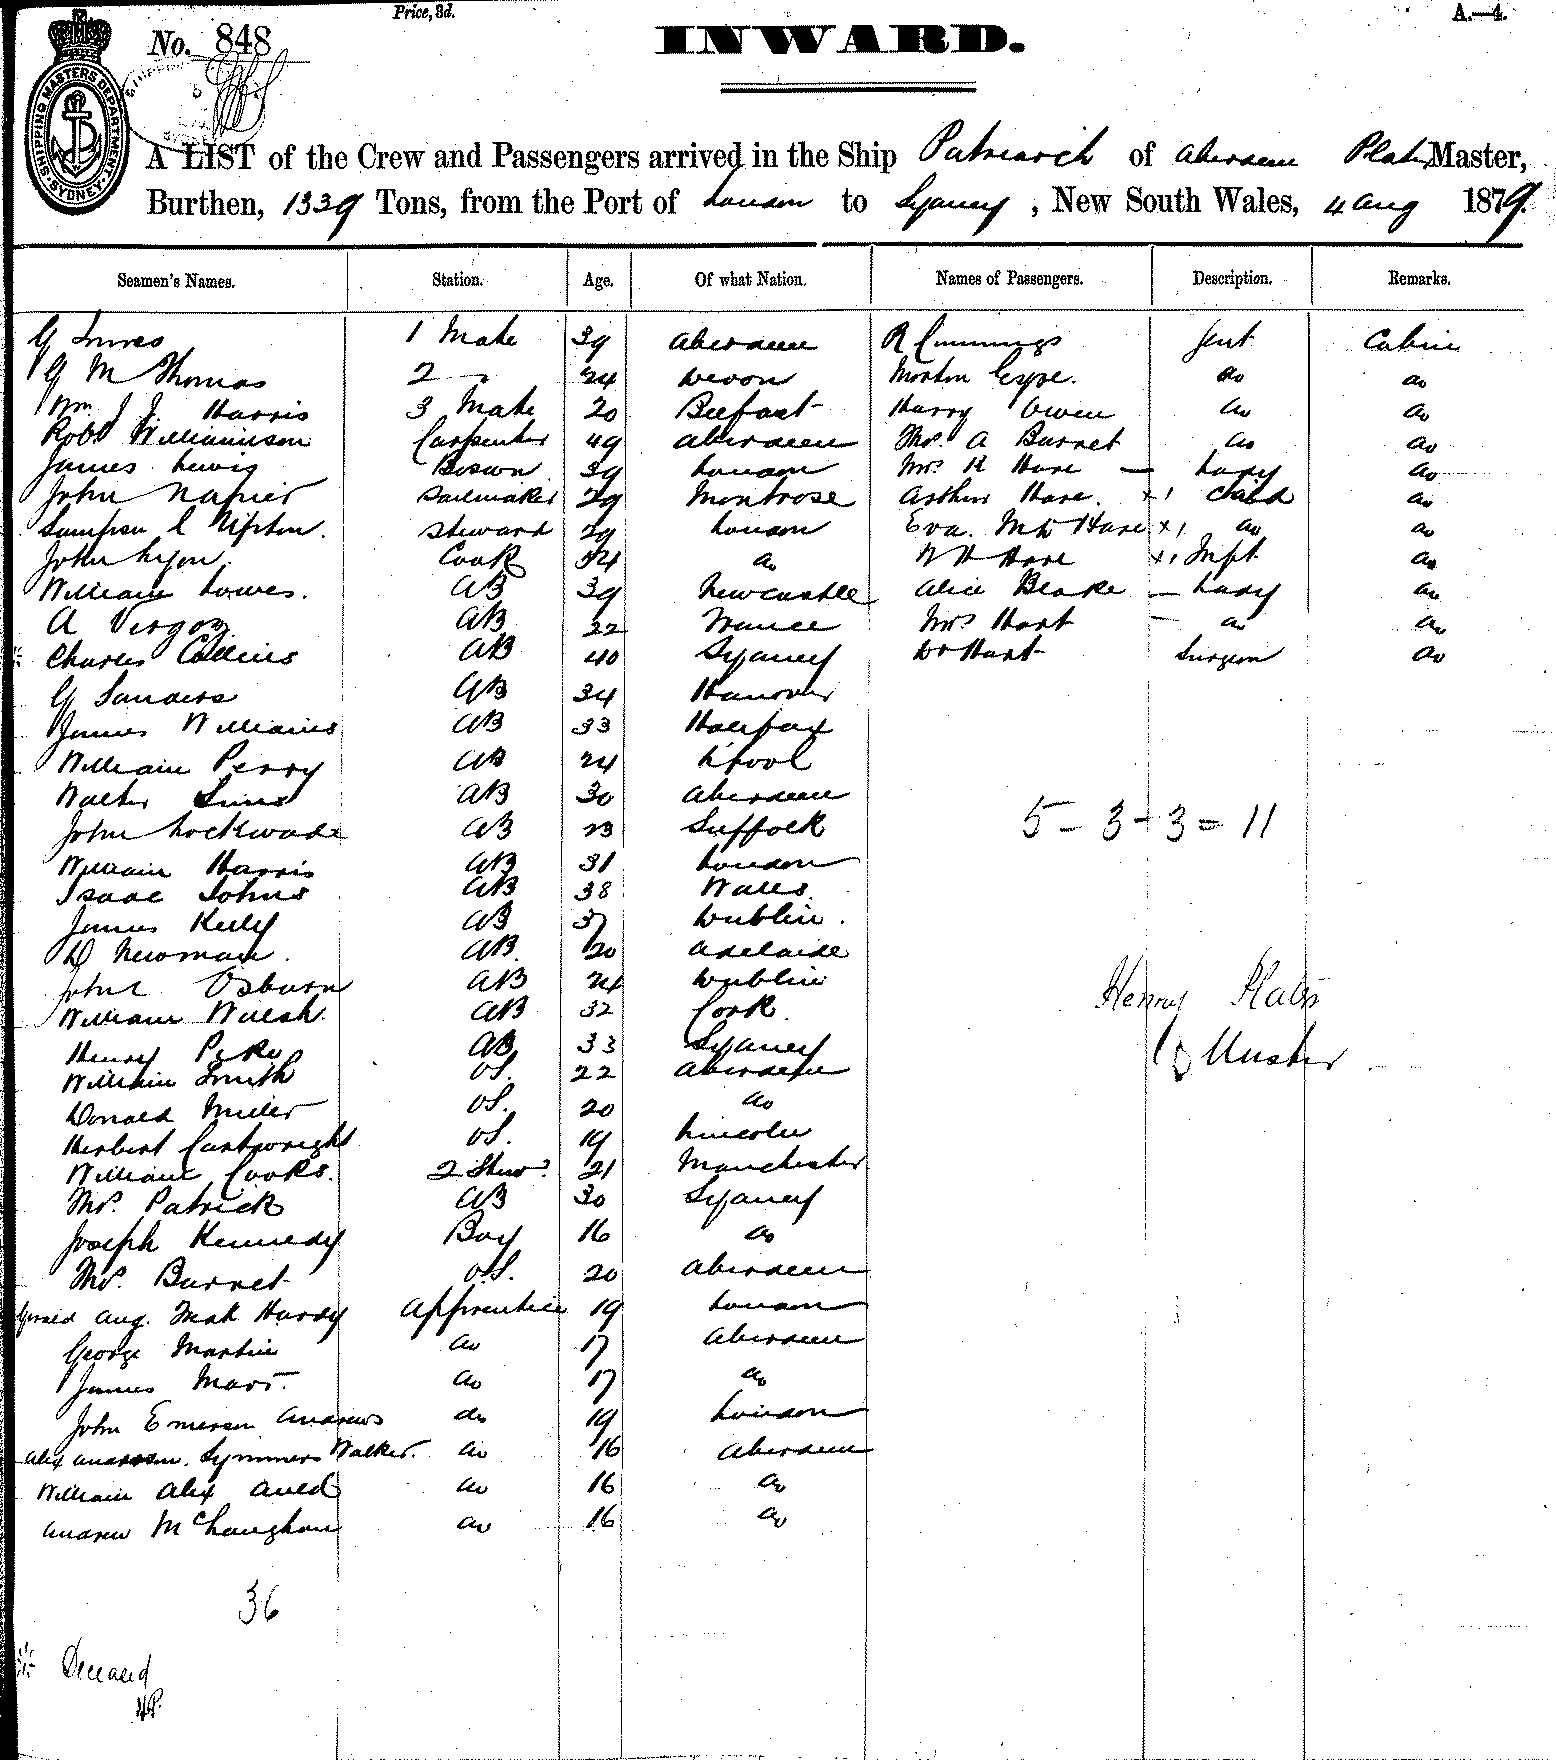 Price, 3d.
A.—4.
No. 848
INWARD.
SHIPPING MASTERS DEPARTMENT SYDNEY
A LIST of the Crew and Passengers arrived in the Ship Patriarch of Aberdeen Plater Master,
Burthen, 1339 Tons, from the Port of London to Sydney, New South Wales, 4 Aug 1879.
Seamen's Names. Station. Age. Of what Nation. Names of Passengers. Description. Remarks.
G Innes 1 Mate 39 Aberdeen R Cummings Gent Cabin
G M Thomas 2 " 24 Devon Morton do do
Wm J J Harris 3 Mate 20 Belfast Harry Owen do do
Robt Williamson Carpenter 49 Aberdeen Thos. A Burnet do do
James Lewis Bosun 39 London Mrs H Hare — Lady do
John Napier Sailmaker 29 Montrose Arthur Hare. x 1 Child do
Sampson C Steward 29 London Eva. Hare x 1 do do
John Lyon Cook 34 do W H Hare x 1 Inft do
William Lowes. AB 39 Newcastle Alice Blake — Lady do
A AB 22 France Mrs Hart — do do
* Charles Collins AB 40 Sydney Dr Hart Surgeon do
G Sanders AB 34 Hanover
James Williams AB 33 Halifax
William Perry AB 24 L'pool
Walter Sims AB 30 Aberdeen
John Lockwade AB 23 Suffolk
5 - 3 + 3 = 11
William Harris AB 31 London
Isaac Johns AB 38 Wales
James Kelly AB 37 Dublin.
D Newman. AB. 20 Adelaide
John Osburn AB 24 Dublin
William Walsh. AB 32 Cork.
Henry AB 33 Sydney
William Smith OS. 22 Aberdeen
Henry Plater
Master
Donald Miller OS. 20 do
Herbert Cartwright OS. 19 Lincoln
William Cooks. 2 Stewd 21 Manchester
Thos. Patrick AB 30 Sydney
Joseph Kennedy Boy 16 do
Thos. Burnet O.S. 20 Aberdeen
Gerald Aug. Hardy Apprentice 19 London
George Martin do 17 Aberdeen
James do 17 do
John Emerson Andrews do 19 London
Alex Anderson. Symmers Walker. do 16 Aberdeen
William Alex Auld do 16 do
Andrew McLaughan do 16 do
36
* Deceased
HP.